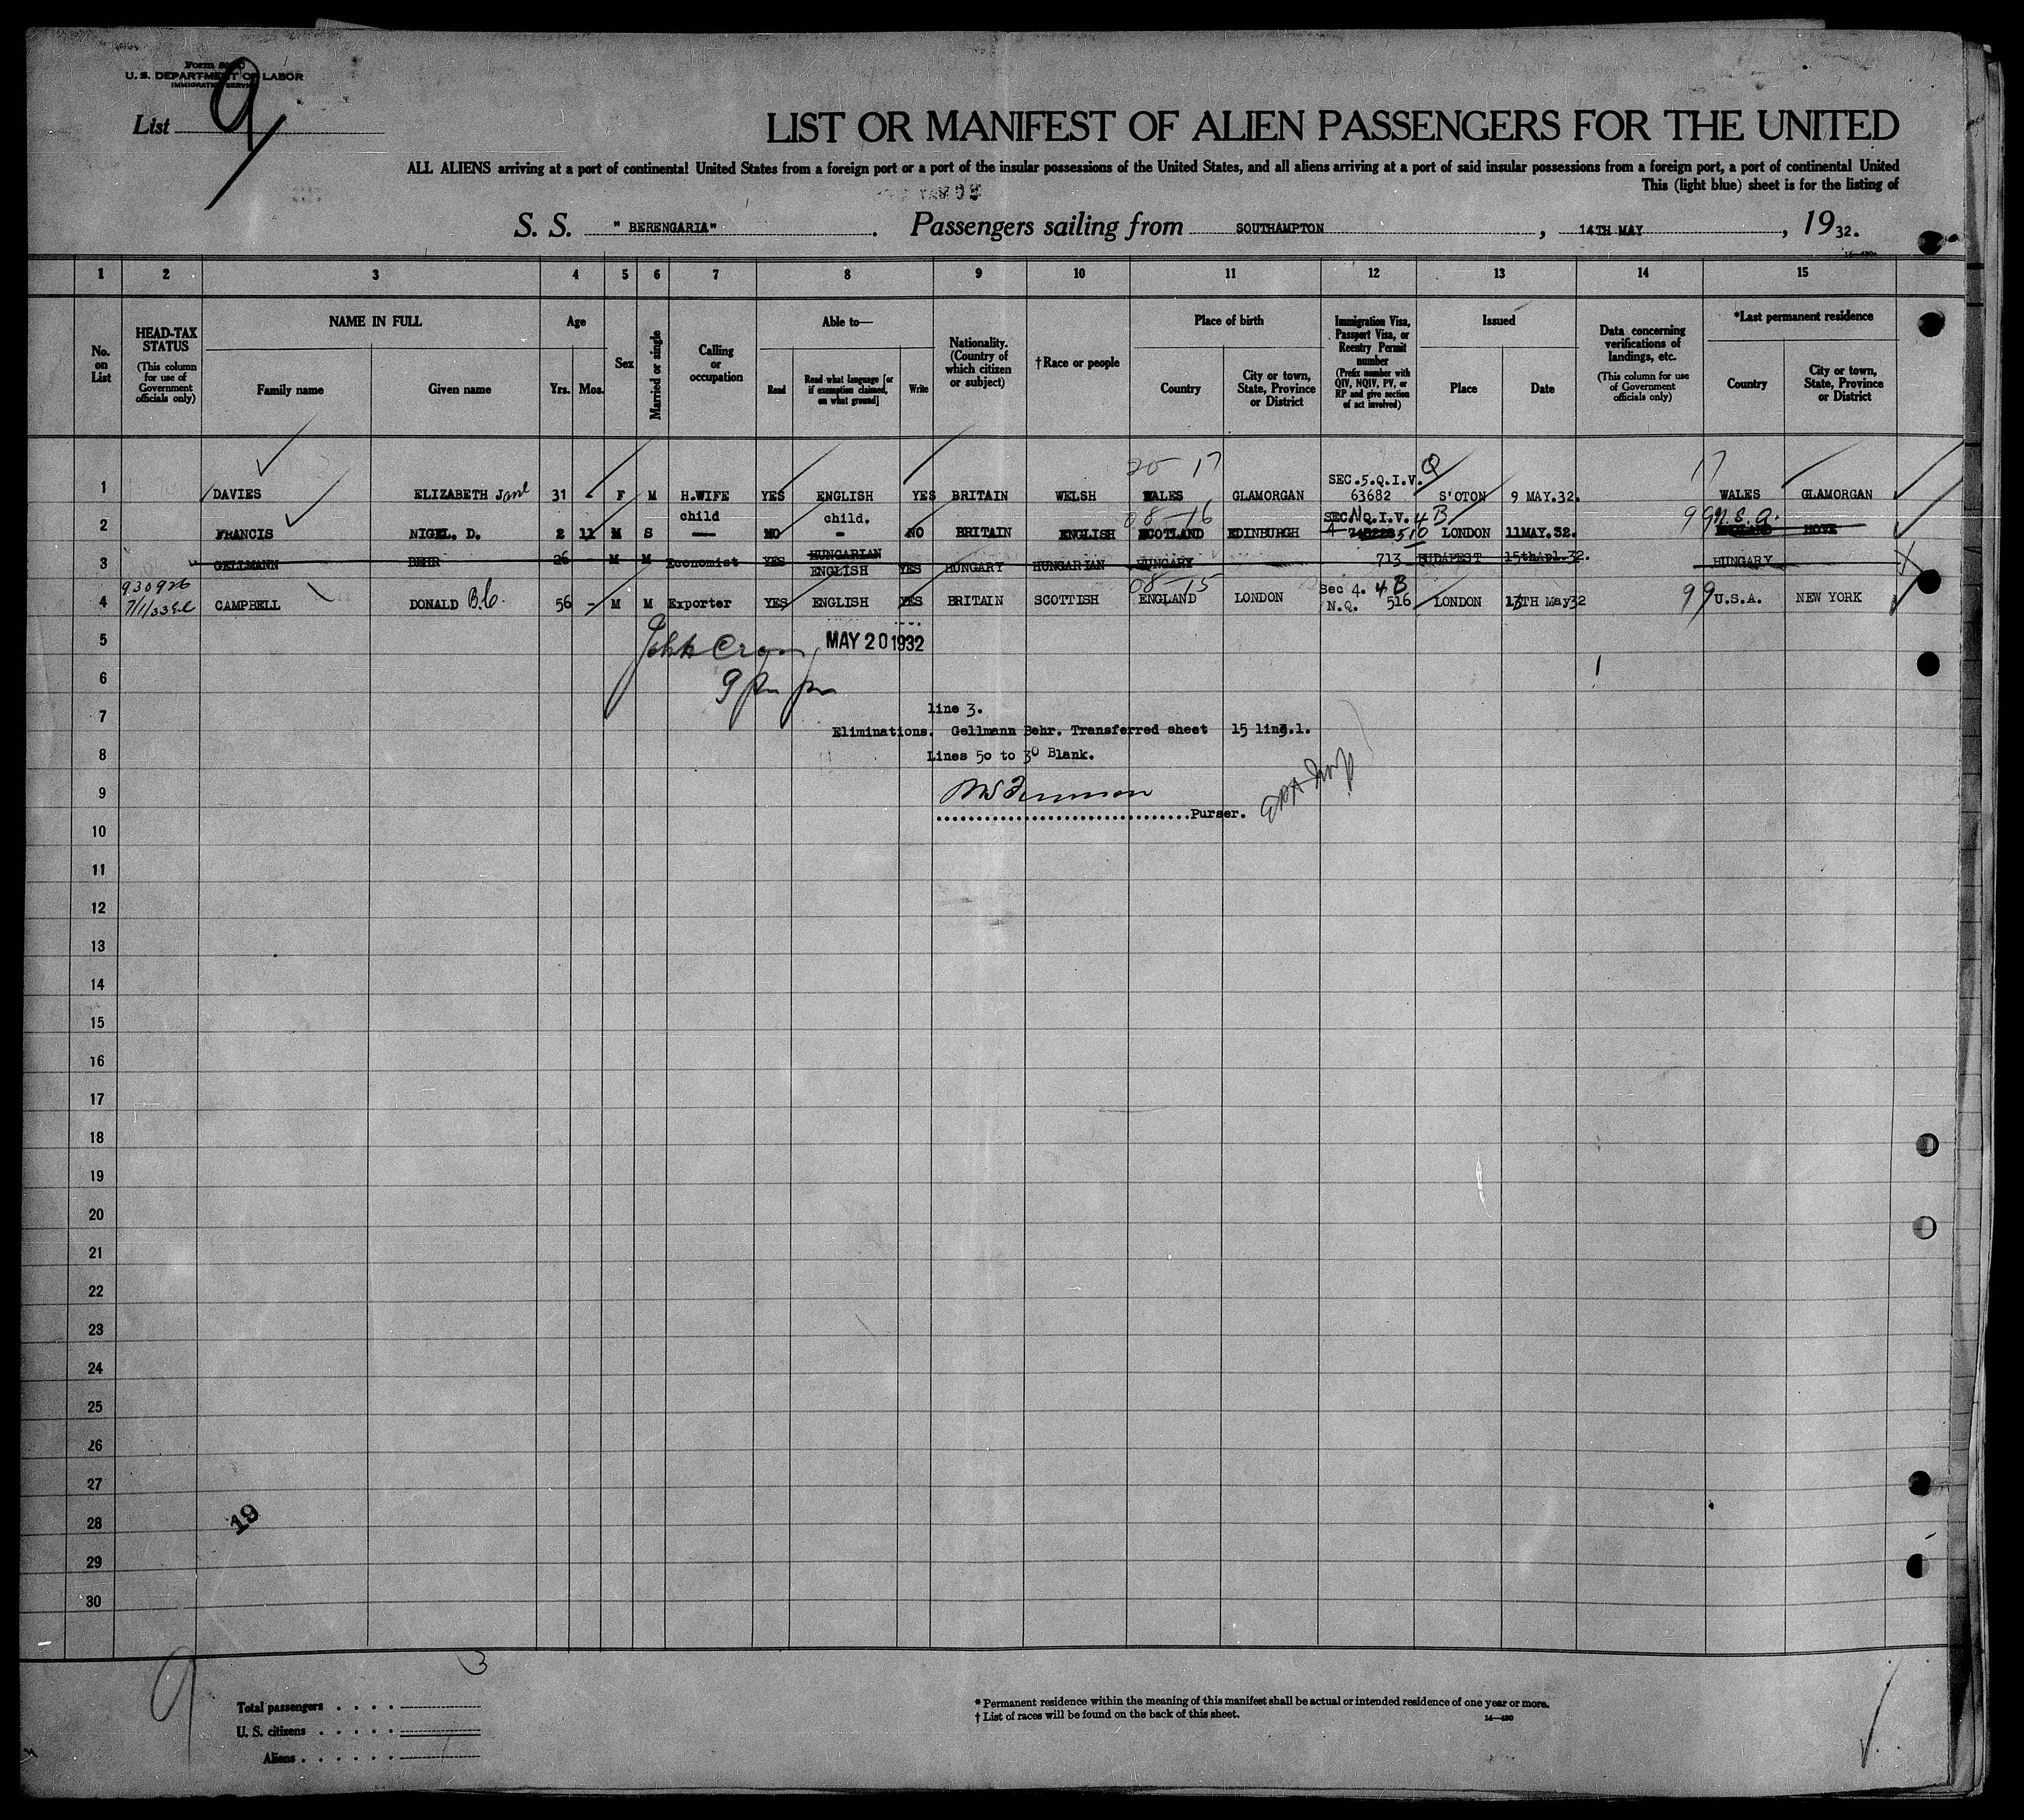 Form
U. S. DEPARTMENT OF LABOR
IMMIGRATION SERVICE
List 9
LIST OR MANIFEST OF ALIEN PASSENGERS FOR THE UNITED
ALL ALIENS arriving at a port of continental United States from a foreign port or a port of the insular possessions of the United States, and all aliens arriving at a port of said insular possessions from a foreign port, a port of continental United
This (light blue) sheet is for the listing of
S. S. "BERENGARIA". Passengers sailing from SOUTHAMPTON, 14TH MAY, 1932.
1 2 3 4 5 6 7 8 9 10 11 12 13 14 15
No. on List
HEAD-TAX STATUS
(This column for use of Government officials only)
NAME IN FULL
Family name Given name
Age
Yrs. Mos.
Sex
Married or single
Calling or occupation
Able to—
Read Read what language [or if exemption claimed, on what ground] Write
Nationality. (Country of which citizen or subject)
†Race or people
Place of birth
Country City or town, State, Province or District
Immigration Visa, Passport Visa, or Reentry Permit number
(Prefix number with QIV, NQIV, PV, or RP and give section of act involved)
Issued
Place Date
Data concerning verifications of landings, etc.
(This column for use of Government officials only)
*Last permanent residence
Country City or town, State, Province or District
20—17 17
SEC.5.Q.I.V. Q
1 DAVIES ELIZABETH Jane 31 - F M H.WIFE YES ENGLISH YES BRITAIN WELSH WALES GLAMORGAN 63682 S'OTON 9 MAY.32. WALES GLAMORGAN
child child. 08—16 SEC.NQ.I.V. 4 B 99 U.S.A.
2 FRANCIS NIGEL. D. 2 11 M S — NO - NO BRITAIN ENGLISH SCOTLAND EDINBURGH 510 LONDON 11MAY.32. ENGLAND HOVE
HUNGARIAN
3 GELLMANN BEHR 26 - M M Economist YES ENGLISH YES HUNGARY HUNGARIAN HUNGARY 713 BUDAPEST 15thApl.32. HUNGARY
930926 08—15 Sec 4. 4 B
4 7/1/33 CAMPBELL DONALD B.C. 56 - M M Exporter YES ENGLISH YES BRITAIN SCOTTISH ENGLAND LONDON N.Q. 516 LONDON 13TH May32 99 U.S.A. NEW YORK
5 MAY 20 1932
6
7 line 3.
Eliminations. Gellmann Behr. Transferred sheet 15 line.1.
8 Lines 50 to 30 Blank.
9
Purser.
10
11
12
13
14
15
16
17
18
19
20
21
22
23
24
25
26
27
28
19
29
30
9 3
Total passengers
U. S. citizens
Aliens
* Permanent residence within the meaning of this manifest shall be actual or intended residence of one year or more.
† List of races will be found on the back of this sheet.
14—430